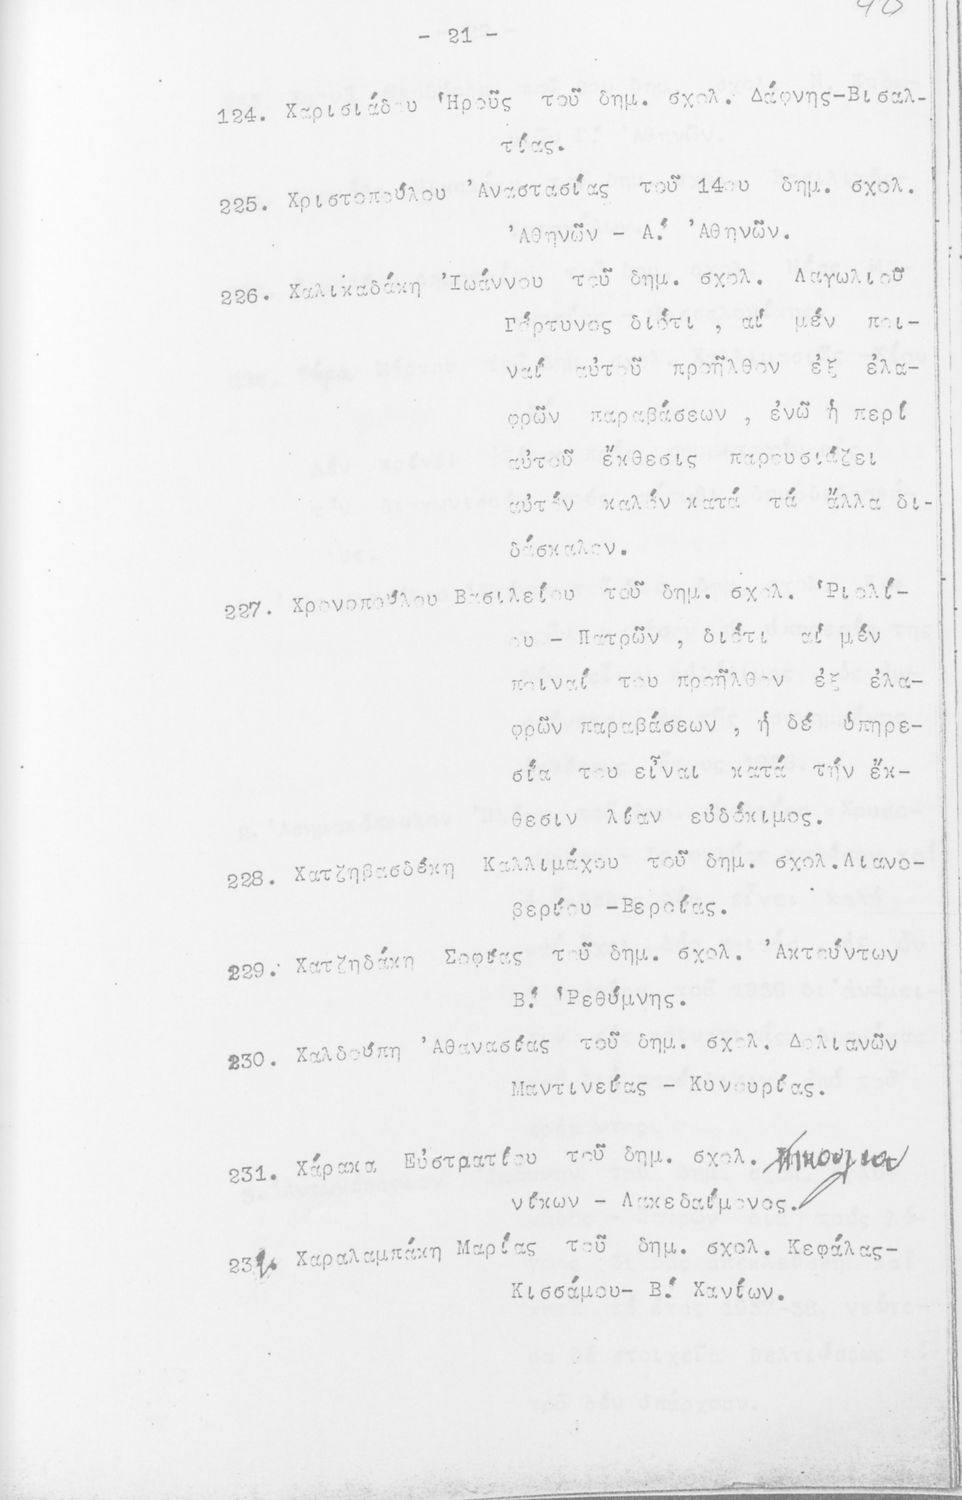 - 21 -
124. Χαρισιάδου Ἡροῦς τοῦ δημ. σχολ. Δάφνης-Βισαλ-
τίας.
225. Χριστοπούλου Ἀναστασίας τοῦ 14ου δημ. σχολ.
Ἀθηνῶν - Α.' Ἀθηνῶν.
226. Χαλικαδάκη Ἰωάννου τοῦ δημ. σχολ. Λαγωλιοῦ
Γόρτυνος διότι , αἱ μέν ποι-
ναί αὐτοῦ προῆλθον ἐξ ἐλα-
φρῶν παραβάσεων , ἐνῶ ἡ περί
αὐτοῦ ἔκθεσις παρουσιάζει
αὐτόν καλόν κατά τά ἄλλα δι-
δάσκαλον.
227. Χρονοπούλου Βασιλείου τοῦ δημ. σχολ. Ῥιολί-
ου - Πατρῶν , διότι αἱ μέν
ποιναί του προῆλθον ἐξ ἐλα-
φρῶν παραβάσεων , ἡ δέ ὑπηρε-
σία του εἶναι κατά τήν ἔκ-
θεσιν λίαν εὐδόκιμος.
228. Χατζηβασδέκη Καλλιμάχου τοῦ δημ. σχολ.Λιανο-
βεργίου -Βεροίας.
229. Χατζηδάκη Σοφίας τοῦ δημ. σχολ. Ἀκτούντων
Β.' Ῥεθύμνης.
230. Χαλδούπη Ἀθανασίας τοῦ δημ. σχολ. Δολιανῶν
Μαντινείας - Κυνουρίας.
231. Χάρακα Εὐστρατίου τοῦ δημ. σχολ.
νίκων - Λακεδαίμονος.
232. Χαραλαμπάκη Μαρίας τοῦ δημ. σχολ. Κεφάλας-
Κισσάμου- Β.' Χανίων.